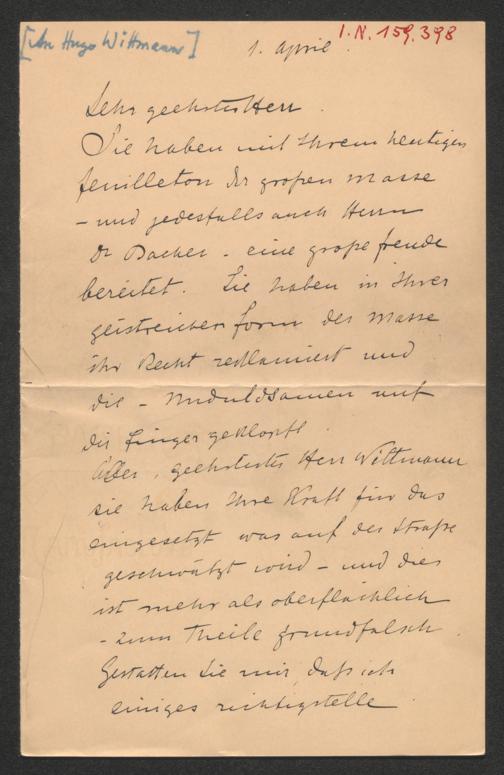 [An Hugo Wittmann]
I.N. 159.398
1. April.
Sehr geehrter Herr
Sie haben mit Ihrem heutigen
feuilleton der großen Masse
– und jedesfalls auch Herrn
Dr Bacher – eine große freude
bereitet. Sie haben in Ihrer
geistreichen form der Masse
ihr Recht reklamiert und
die – Unduldsamen auf
die finger geklopft.
Aber, geehrtester Herr Wittmann
sie haben Ihre Kraft für das
eingesetzt was auf der Straße
geschwätzt wird – und dies
ist mehr als oberflächlich
– zum Theile grundfalsch.
Gestatten Sie mir, daß ich
einiges richtigstelle